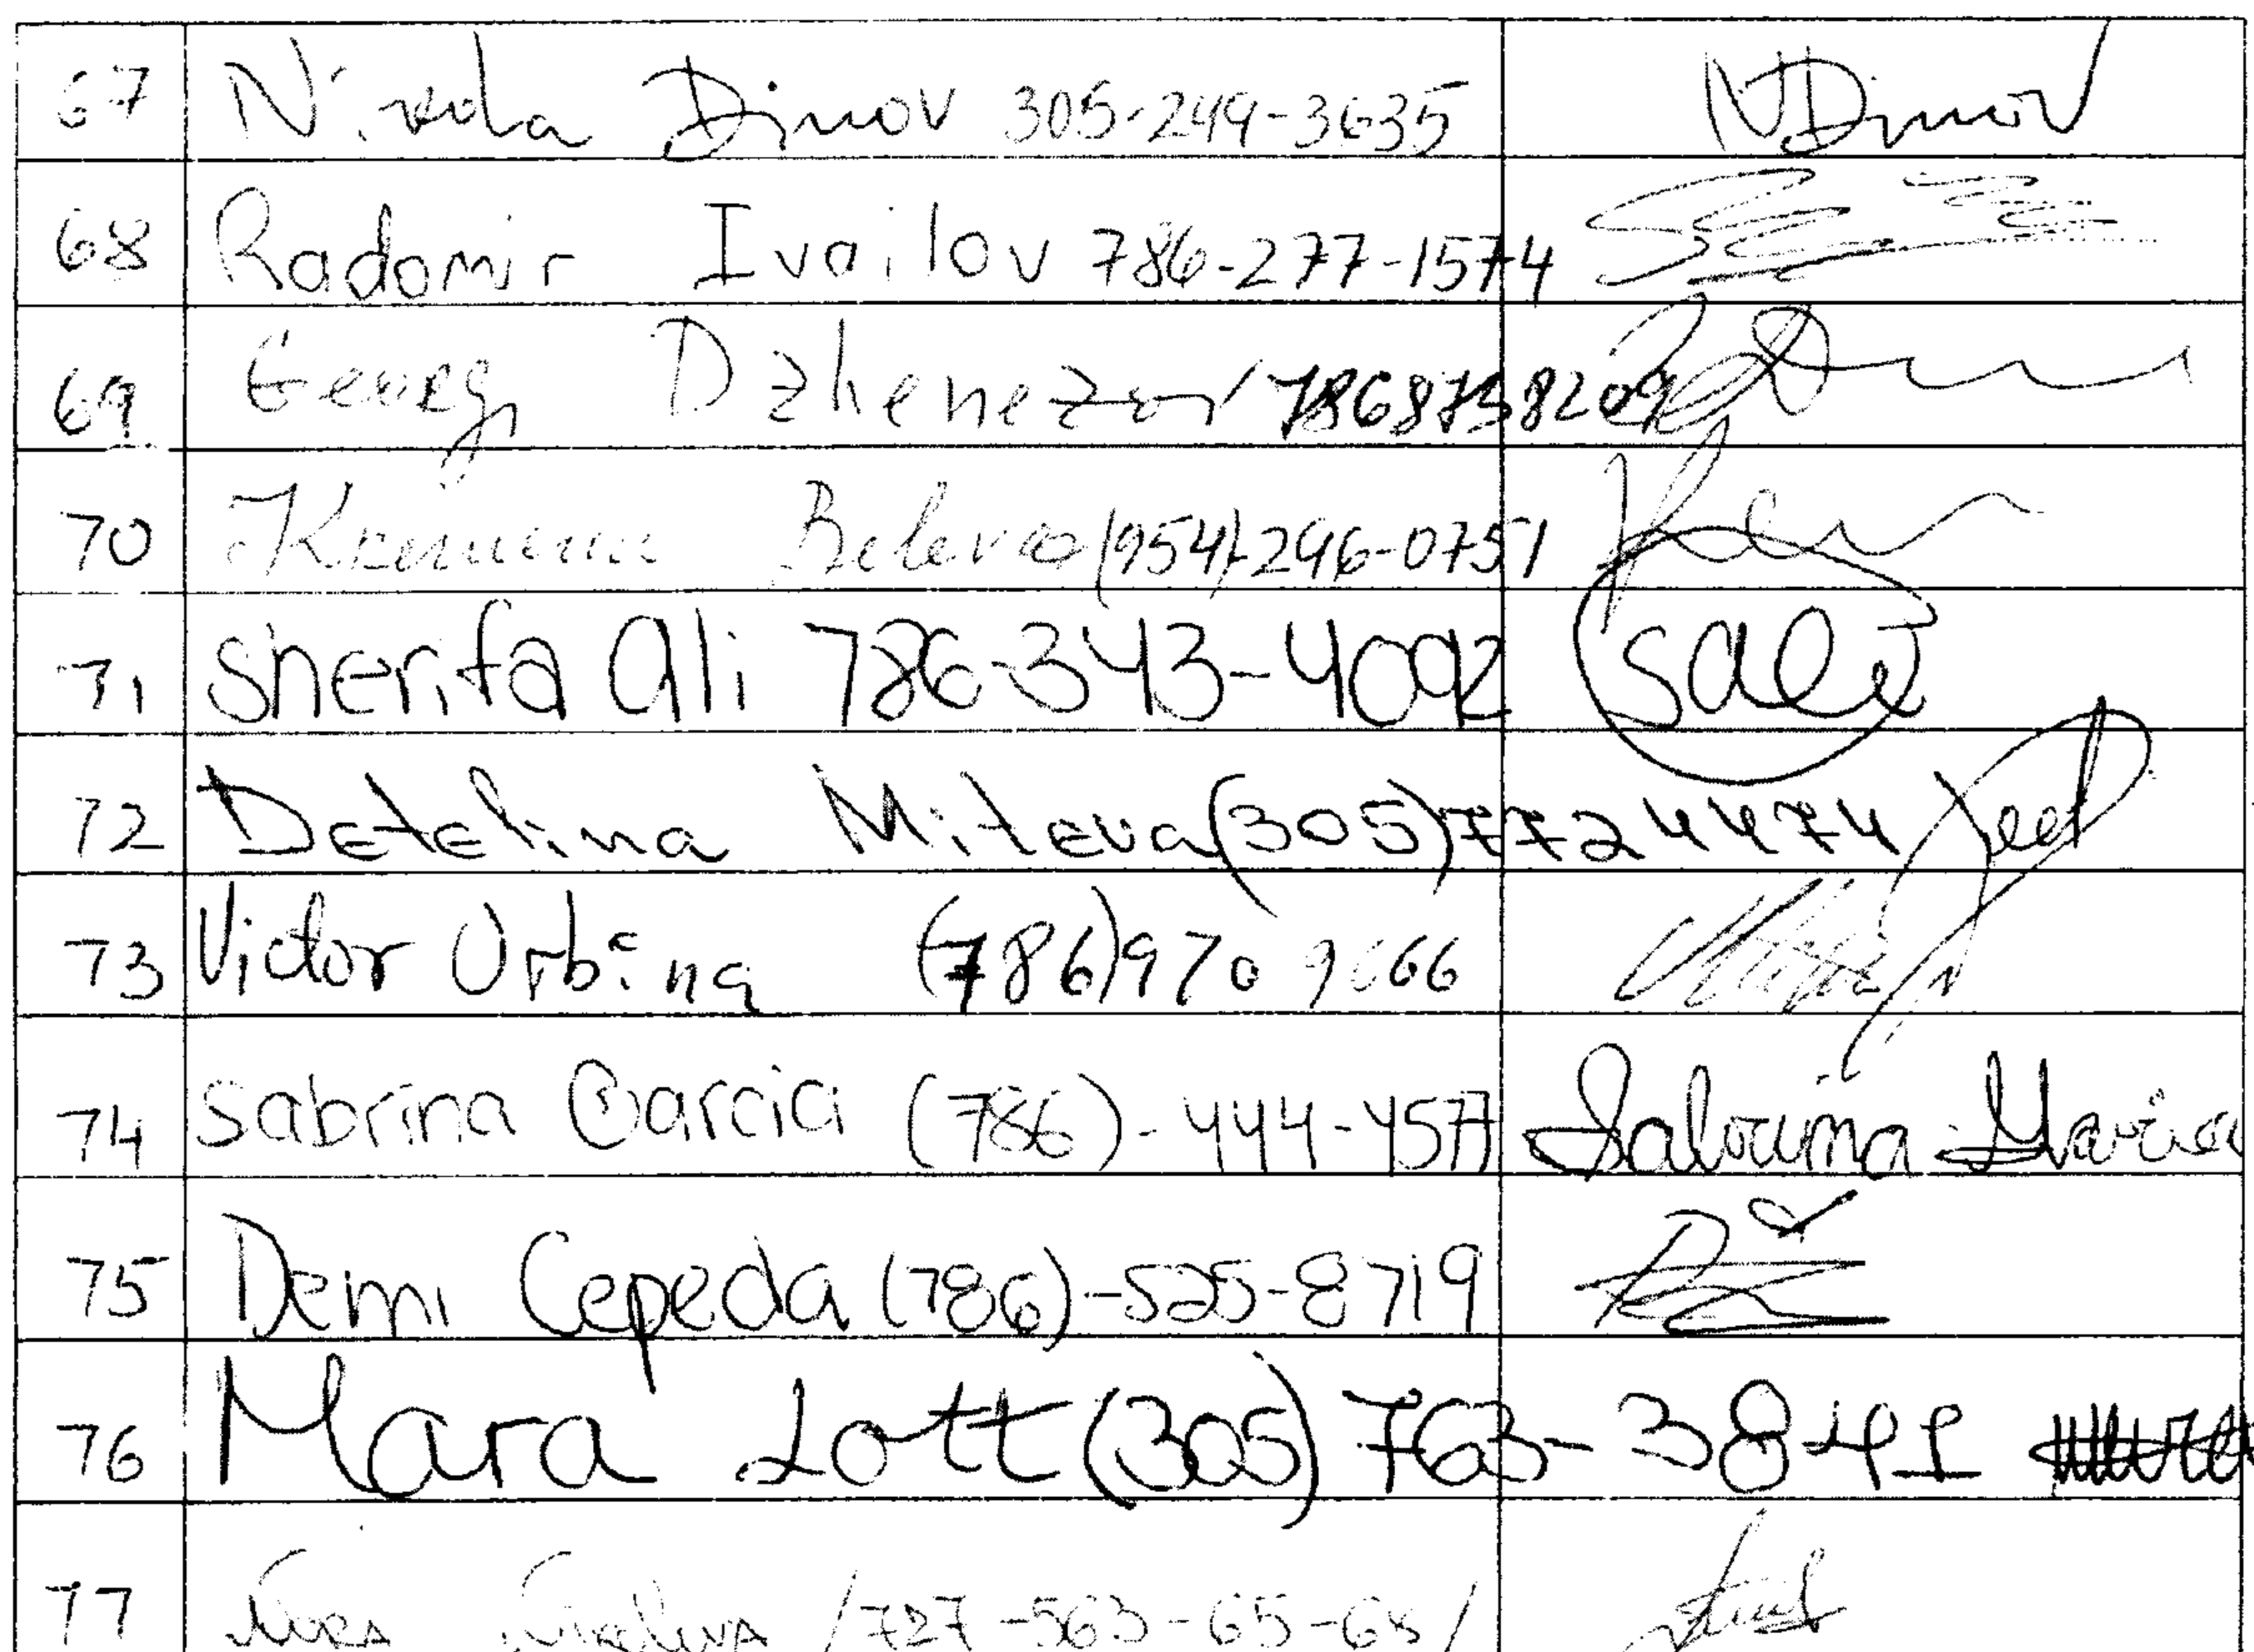 67 Nikola Dimov 305-249-3635 NDimov
68 Radomir Ivailov 786-277-1574
69 Georgi Dzhenezov 7868758209
70 Beleva (954)-296-0751
71 Sherifa Ali 786-343-4092 SAli
72 Detelina Miteva (305)7724474
73 Victor Urbina (786)970 9666
74 Sabrina Garcia (786)-444-4577 Sabrina Garcia
75 Demi Cepeda (786)-525-8719
76 Mara Lott (305) 763-3841
77 /727-563-65-68/